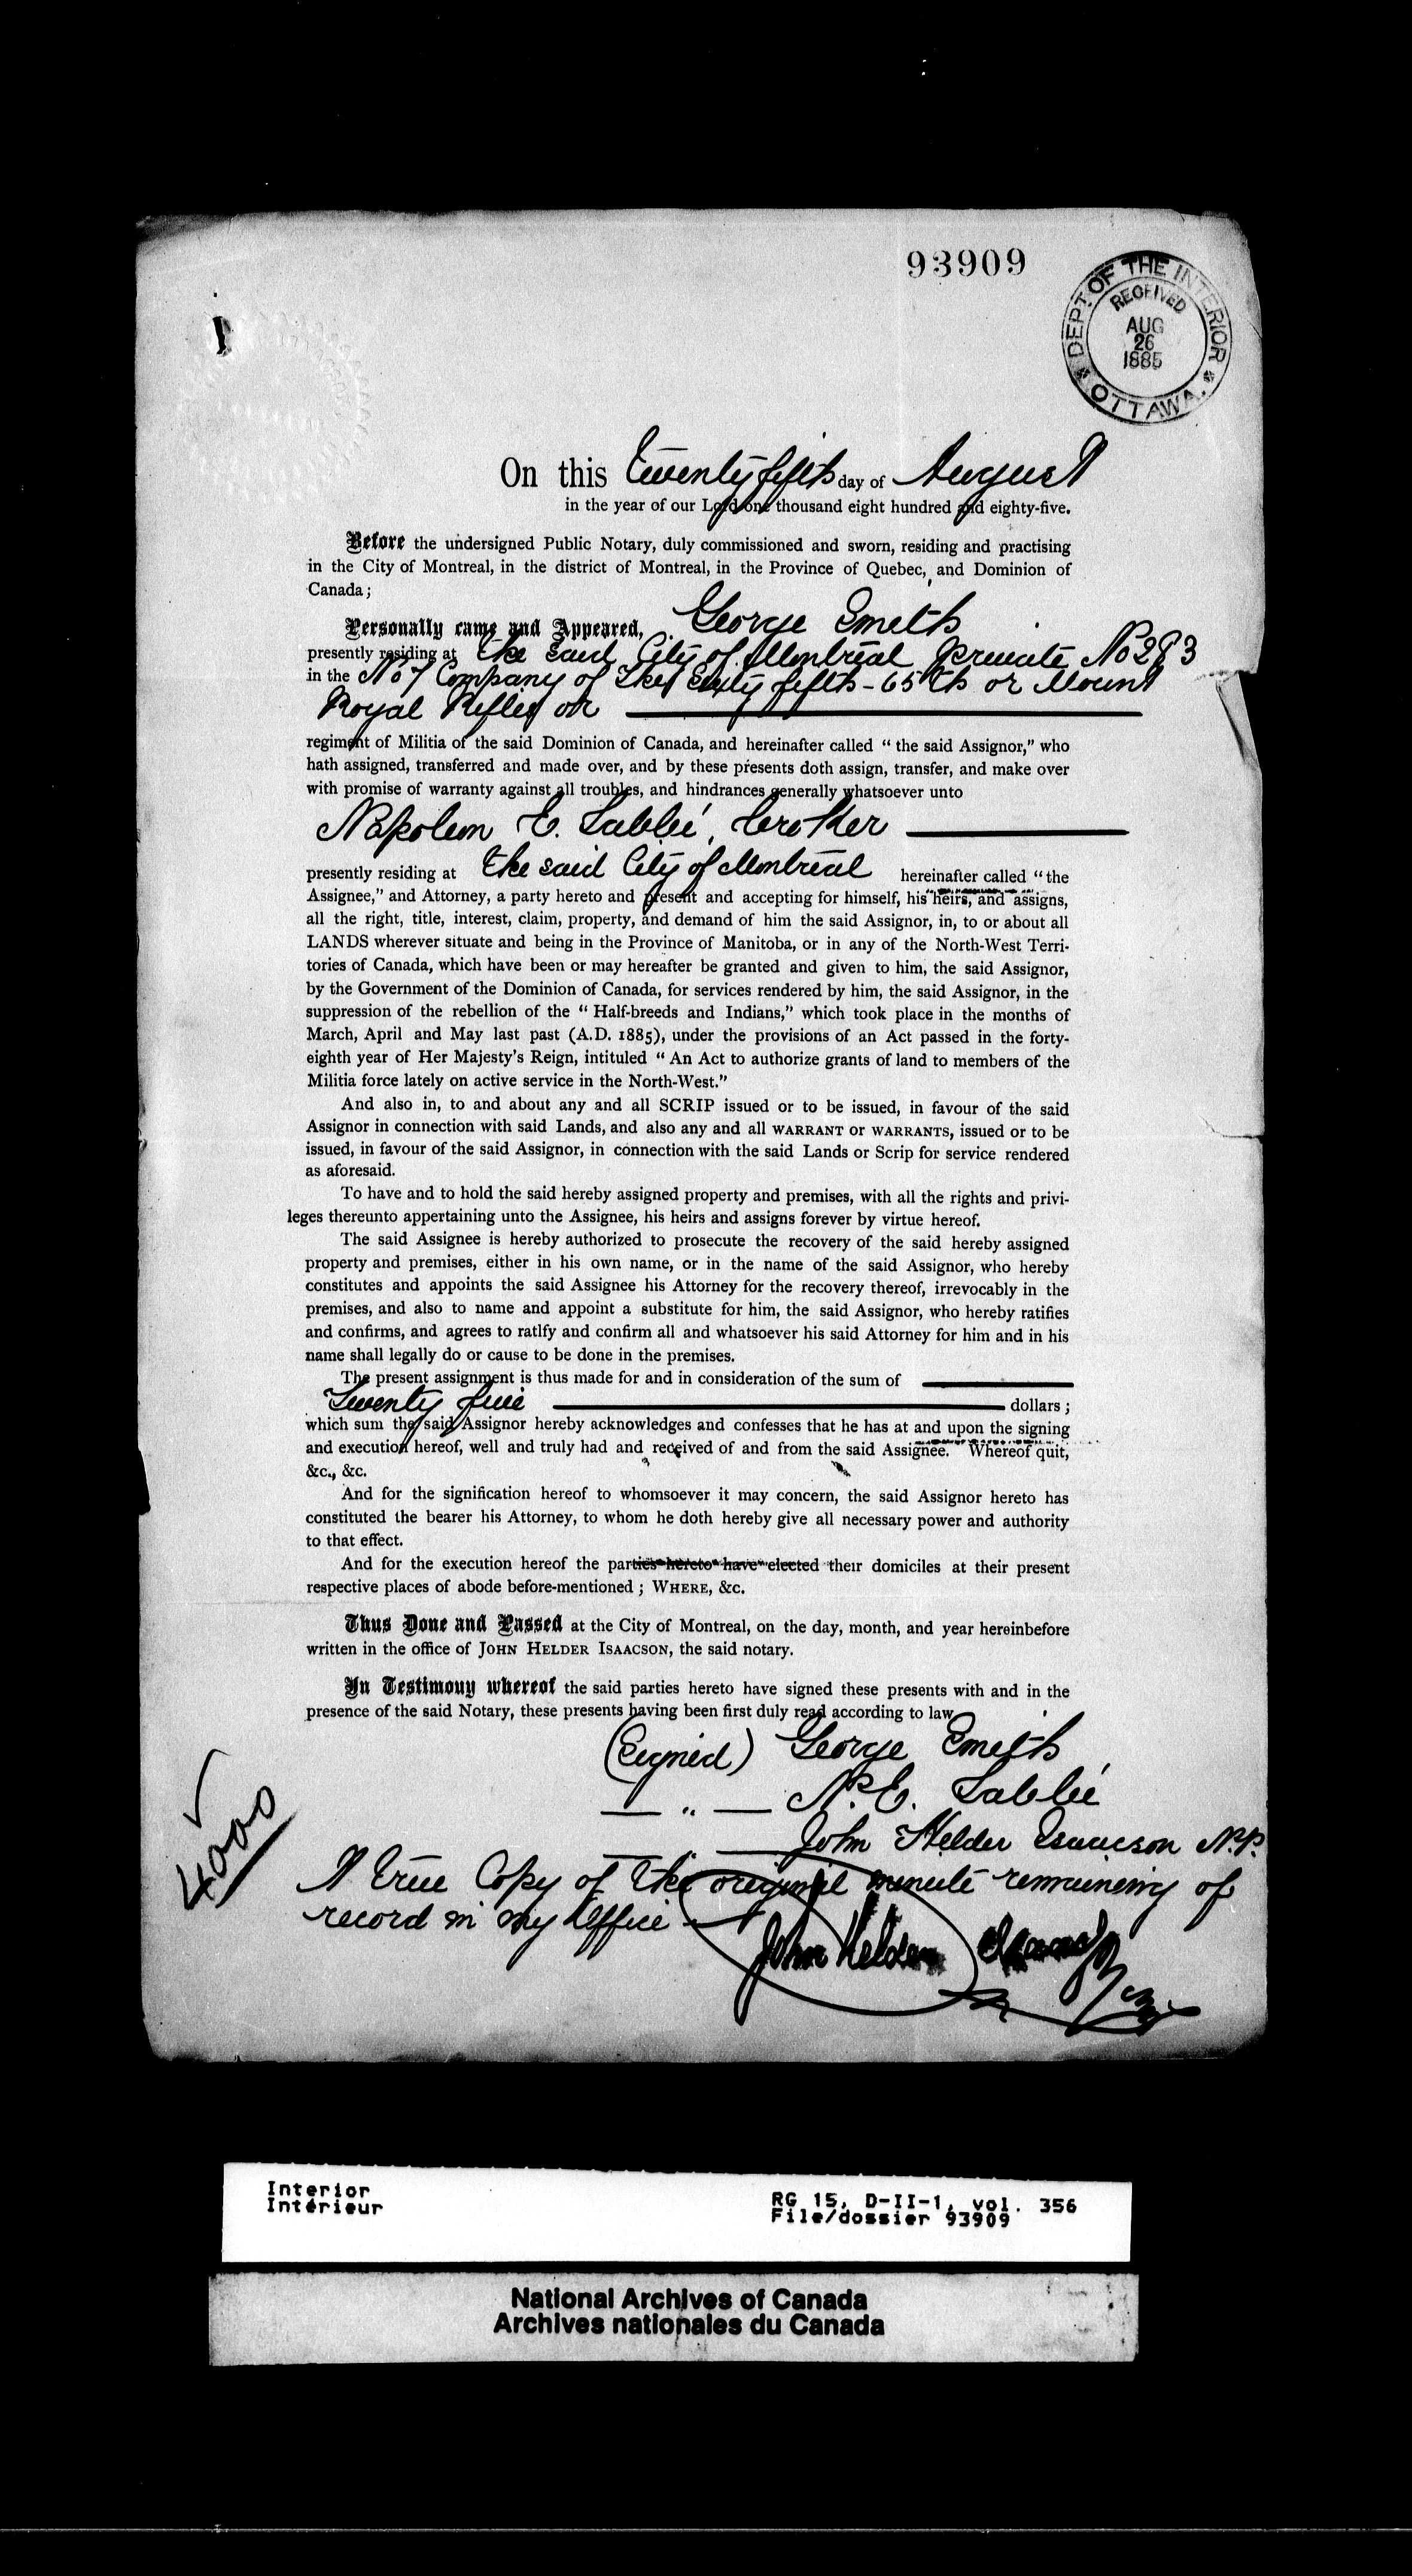 93909
DEPT OF THE INTERIOR
RECEIVED
AUG
26
1885
OTTAWA.
On this Twenty fifth day of August
in the year of our Lord one thousand eight hundred and eighty-five.
Before the undersigned Public Notary, duly commissioned and sworn, residing and practising
in the City of Montreal, in the district of Montreal, in the Province of Quebec, and Dominion of
Canada;
Personally came and Appeared, George Smith
presently residing at the said City of Montreal Private No 283
in the No 7 Company of The Sixty fifth - 65th or Mount
Royal Rifles or
regiment of Militia of the said Dominion of Canada, and hereinafter called "the said Assignor," who
hath assigned, transferred and made over, and by these presents doth assign, transfer, and make over
with promise of warranty against all troubles, and hindrances generally whatsoever unto
Napoleon E. Labbé, broker
presently residing at the said City of Montreal hereinafter called "the
Assignee," and Attorney, a party hereto and present and accepting for himself, his heirs, and assigns,
all the right, title, interest, claim, property, and demand of him the said Assignor, in, to or about all
LANDS wherever situate and being in the Province of Manitoba, or in any of the North-West Terri-
tories of Canada, which have been or may hereafter be granted and given to him, the said Assignor,
by the Government of the Dominion of Canada, for services rendered by him, the said Assignor, in the
suppression of the rebellion of the "Half-breeds and Indians," which took place in the months of
March, April and May last past (A.D. 1885), under the provisions of an Act passed in the forty-
eighth year of Her Majesty's Reign, intituled "An Act to authorize grants of land to members of the
Militia force lately on active service in the North-West."
And also in, to and about any and all SCRIP issued or to be issued, in favour of the said
Assignor in connection with said Lands, and also any and all WARRANT or WARRANTS, issued or to be
issued, in favour of the said Assignor, in connection with the said Lands or Scrip for service rendered
as aforesaid.
To have and to hold the said hereby assigned property and premises, with all the rights and privi-
leges thereunto appertaining unto the Assignee, his heirs and assigns forever by virtue hereof.
The said Assignee is hereby authorized to prosecute the recovery of the said hereby assigned
property and premises, either in his own name, or in the name of the said Assignor, who hereby
constitutes and appoints the said Assignee his Attorney for the recovery thereof, irrevocably in the
premises, and also to name and appoint a substitute for him, the said Assignor, who hereby ratifies
and confirms, and agrees to ratify and confirm all and whatsoever his said Attorney for him and in his
name shall legally do or cause to be done in the premises.
The present assignment is thus made for and in consideration of the sum of
Twenty five dollars;
which sum the said Assignor hereby acknowledges and confesses that he has at and upon the signing
and execution hereof, well and truly had and received of and from the said Assignee. Whereof quit,
&c., &c.
And for the signification hereof to whomsoever it may concern, the said Assignor hereto has
constituted the bearer his Attorney, to whom he doth hereby give all necessary power and authority
to that effect.
And for the execution hereof the parties hereto have elected their domiciles at their present
respective places of abode before-mentioned; WHERE, &c.
Thus Done and Passed at the City of Montreal, on the day, month, and year hereinbefore
written in the office of JOHN HELDER ISAACSON, the said notary.
In Testimony whereof the said parties hereto have signed these presents with and in the
presence of the said Notary, these presents having been first duly read according to law
(Signed) George Smith
— " — N. E. Labbé
— " — John Helder Isaacson N.P.
A true Copy of the original minute remaining of
record in my Office
John Helder Isaacson
4000
Interior
Intérieur
RG 15, D-II-1, vol. 356
File/dossier 93909
National Archives of Canada
Archives nationales du Canada